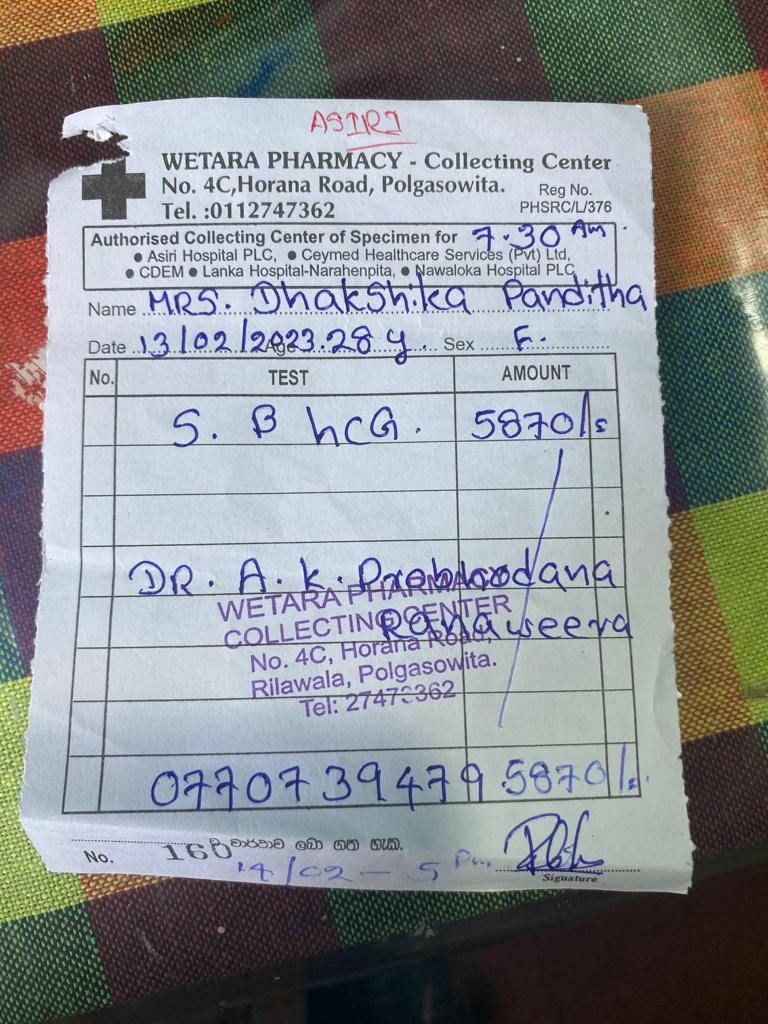 ASIRI
WETARA PHARMACY - Collecting Center
No. 4C,Horana Road, Polgasowita.
Reg No.
Tel. :0112747362
PHSRC/L/376
Authorised Collecting Center of Specimen for 7.30 Am.
● Asiri Hospital PLC, ● Ceymed Healthcare Services (Pvt) Ltd,
● CDEM ● Lanka Hospital-Narahenpita, ● Nawaloka Hospital PLC
Name MRS. Dhakshika Panditha
Date 13/02/2023. Age 28 y. Sex F.
No. TEST AMOUNT
S. B hCG. 5870/s
DR. A. K.
WETARA PHARMACY
COLLECTING CENTER
Ranaweera
No. 4C, Horana Road,
Rilawala, Polgasowita.
Tel: 2747362
0770739479 5870/.
No. 160 ලබා ගත හැක.
14/02 - 5 Pm
Signature